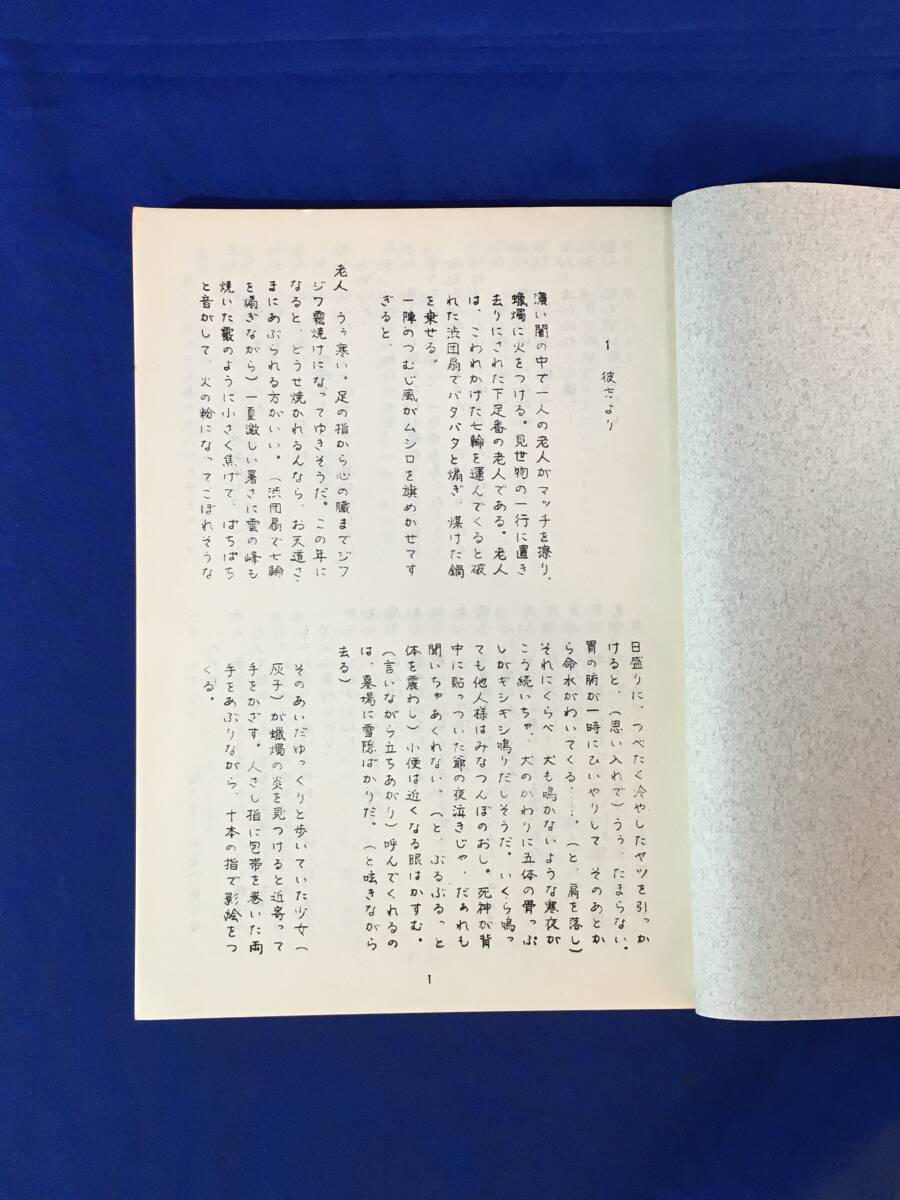 1　彼方より
濃い闇の中で一人の老人がマッチを擦り、
蠟燭に火をつける。見世物の一行に置き
去りにされた下足番の老人である。老人
は、こわれかけた七輪を運んでくると破
れた渋団扇でバタバタと煽ぎ、煤けた鍋
を乗せる。
一陣のつむじ風がムシロを旗めかせてす
ぎると、
老人　うぅ寒い。足の指から心の臓までジフ
ジワ霜焼けになってゆきそうだ。この年に
なると、どうせ焼かれるんなら、お天道さ
まにあぶられる方がいい。（渋団扇で七輪
を煽ぎながら）一夏激しい暑さに雲の峰も
焼いた霰のように小さく焦げて、ぱちぱち
と音がして、火の粉になってこぼれそうな
日盛りに、つべたく冷やしたヤツを引っか
けると、（思い入れで）うぅ、たまらない。
胃の腑が一時にひいやりして　そのあとか
ら命水がわいてくる……。（と、肩を落し）
それにくらべ　犬も鳴かないような寒夜が
こう続いちゃ、犬のかわりに五体の骨っぷ
しがギシギシ鳴りだしそうだ。いくら鳴っ
ても他人様はみなつんぼのおし。死神が背
中に貼っついた爺の夜泣きじゃ、だぁれも
聞いちゃあくれない。（と、ぶるぶるっと
体を震わし）小便は近くなる眼はかすむ。
（言いながら立ちあがり）呼んでくれるの
は、墓場に雪隠ばかりだ。（と呟きながら
去る）
そのあいだゆっくりと歩いていた少女（
灰子）が蠟燭の炎を見つけると近寄って
手をかざす。人さし指に包帯を巻いた両
手をあぶりながら、十本の指で影絵をつ
くる。
1